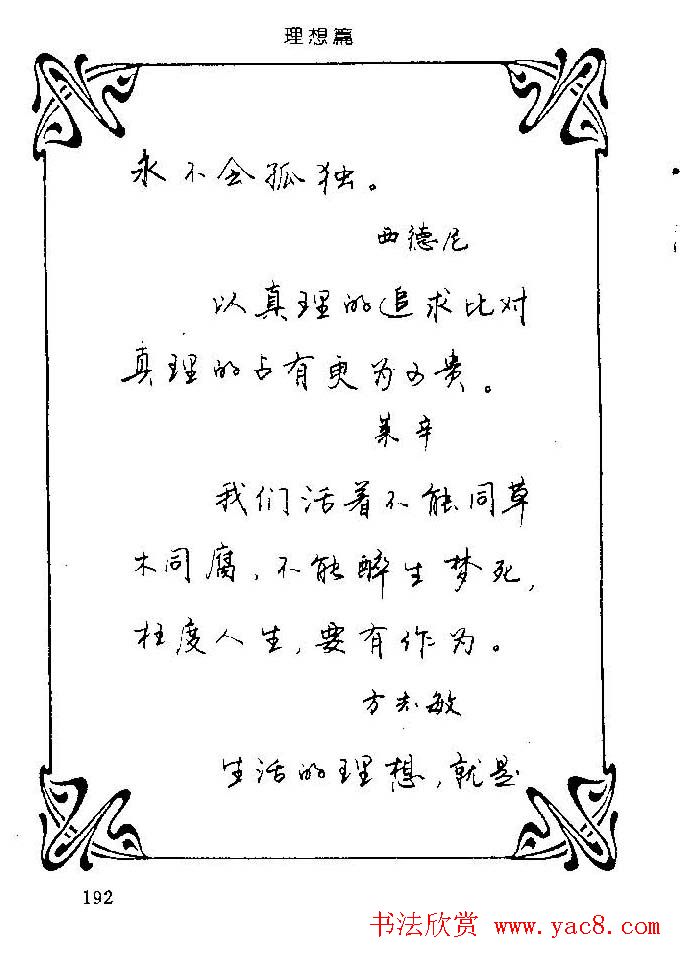 理想篇
永不会孤独。
西德尼
以真理的追求比对
真理的占有更为可贵。
莱辛
我们活着不能同草
木同腐，不能醉生梦死，
枉度人生，要有作为。
方志敏
生活的理想，就是
192
书法欣赏 www.yac8.com